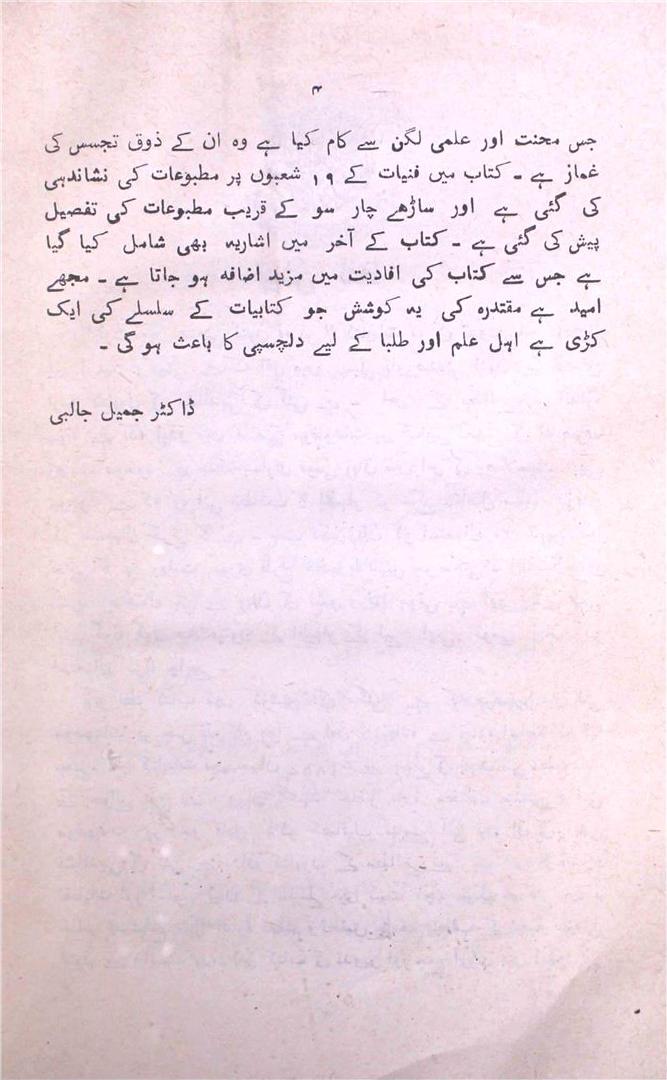 ۴
جس محنت اور علمی لگن سے کام کیا ہے وہ ان کے ذوق تجسس کی
غماز ہے ۔ کتاب میں فنیات کے ۱۹ شعبوں پر مطبوعات کی نشاندہی
کی گئی ہے اور ساڑھے چار سو کے قریب مطبوعات کی تفصیل
پیش کی گئی ہے ۔ کتاب کے آخر میں اشاریہ بھی شامل کیا گیا
ہے جس سے کتاب کی افادیت میں مزید اضافہ ہو جاتا ہے ۔ مجھے
امید ہے مقتدرہ کی یہ کوشش جو کتابیات کے سلسلے کی ایک
کڑی ہے اہل علم اور طلبا کے لیے دلچسپی کا باعث ہو گی ۔
ڈاکٹر جمیل جالبی